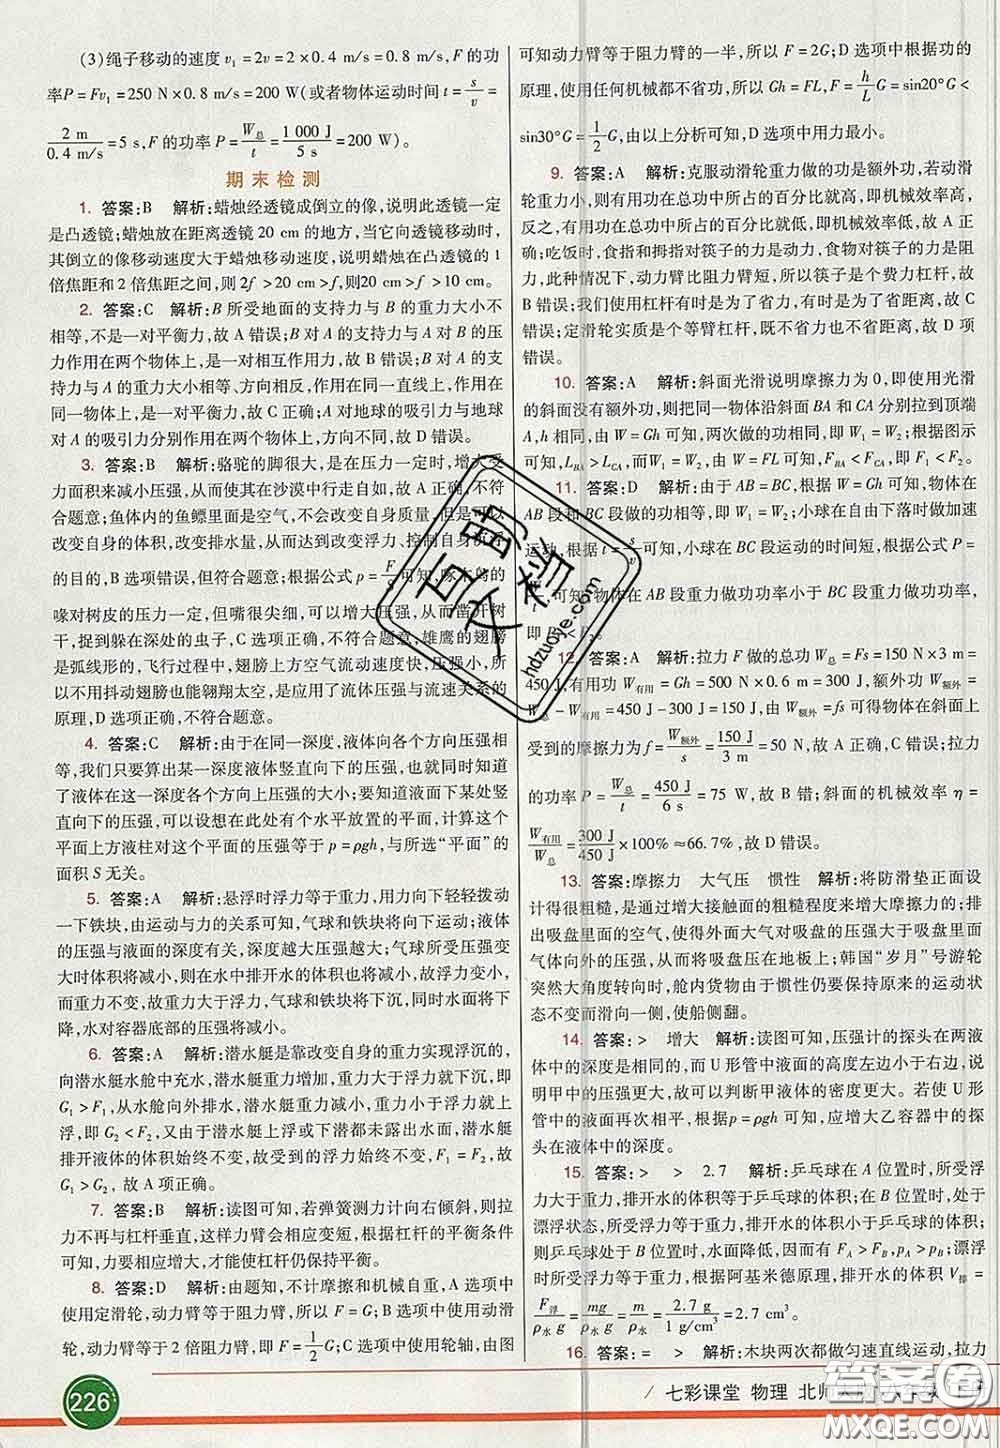 (3)绳子移动的速度 v₁=2v=2×0.4 m/s=0.8 m/s,F 的功
率P=Fv₁=250 N×0.8 m/s=200 W(或者物体运动时间=s/v=
2 m/0.4 m/s=5 s,F 的功率 P=W总/t=1 000 J/5 s=200 W)。
期末检测
1. 答案:B 解析:蜡烛经透镜成倒立的像,说明此透镜一定
是凸透镜;蜡烛放在距离透镜 20 cm 的地方,当它向透镜移动时,
其倒立的像移动速度大于蜡烛移动速度,说明蜡烛在凸透镜的 1
倍焦距和 2 倍焦距之间,则 2f>20 cm>f,解得 20 cm>f>10 cm。
2. 答案:C 解析:B 所受地面的支持力与 B 的重力大小不
相等,不是一对平衡力,故 A 错误;B 对 A 的支持力与 A 对 B 的压
力作用在两个物体上,是一对相互作用力,故 B 错误;B 对 A 的支
持力与 A 的重力大小相等、方向相反、作用在同一直线上,作用在
同一物体上,是一对平衡力,故 C 正确;A 对地球的吸引力与地球
对 A 的吸引力分别作用在两个物体上,方向不同,故 D 错误。
3. 答案:B 解析:骆驼的脚很大,是在压力一定时,增大受
力面积来减小压强,从而使其在沙漠中行走自如,故 A 正确,不符
合题意;鱼体内的鱼鳔里面是空气,不会改变自身质量,但是可以
改变自身的体积,改变排水量,从而达到改变浮力、控制自身沉浮
的目的,B 选项错误,但符合题意;根据公式 p=F/S可知,啄木鸟的
喙对树皮的压力一定,但嘴很尖细,可以增大压强,从而凿开树
干,捉到躲在深处的虫子,C 选项正确,不符合题意;雄鹰的翅膀
是弧线形的,飞行过程中,翅膀上方空气流动速度快,压强小,所
以不抖动翅膀也能翱翔太空,是应用了流体压强与流速关系的
原理,D 选项正确,不符合题意。
4. 答案:C 解析:由于在同一深度,液体向各个方向压强相
等,我们只要算出某一深度液体竖直向下的压强,也就同时知道
了液体在这一深度各个方向上压强的大小;要想得到液面下某处竖
直向下的压强,可以设想在此处有个水平放置的平面,计算这个
平面上方液柱对这个平面的压强等于 p=ρgh,与所选“平面”的
面积 S 无关。
5. 答案:A 解析:悬浮时浮力等于重力,用力向下轻轻拨动
一下铁块,由运动与力的关系可知,气球和铁块将向下运动;液体
的压强与液面的深度有关,深度越大压强越大;气球所受压强变
大时体积将减小,则在水中排开水的体积也将减小,故浮力变小,
而重力不变,故重力大于浮力,气球和铁块将下沉,水面将会下
降,水对容器底部的压强将减小。
6. 答案:A 解析:潜水艇是靠改变自身的重力实现浮沉的,
向潜水艇水舱中充水,潜水艇重力增加,潜水艇重力大于浮力,即
G₁>F₁,从水舱向外排水,潜水艇重力减小,重力小于浮力时上
浮,即 G₂<F₂,又由于潜水艇上浮或下潜都未露出水面,潜水艇
排开液体的体积始终不变,故受到的浮力始终不变,F₁=F₂,故
G₁>G₂,故 A 项正确。
7. 答案:B 解析:读图可知,若弹簧测力计向右倾斜,则拉
力不再与杠杆垂直,这样力臂会相应变短,根据杠杆的平衡条件
可知,力要相应增大,才能使杠杆仍保持平衡。
8. 答案:D 解析:由题知,不计摩擦和机械自重,A 选项中
使用定滑轮,动力臂等于阻力臂,所以 F=G;B 选项中使用动滑
轮,动力臂等于 2 倍阻力臂,即 F=1/2G;C 选项中使用轮轴,由图
可知动力臂等于阻力臂的一半,所以 F=2G;D 选项中根据功的
原理,使用任何机械都不省功,所以 Gh=FL,F=h/LG=sin20°G<
sin30°G=1/2G,由以上分析可知,D 选项中用力最小。
9. 答案:A 解析:克服动滑轮重力做的功是额外功,若动滑
轮重力小,则有用功在总功中所占的百分比就高,即机械效率高,
反之,有用功在总功中所占的百分比就低,即机械效率低,故 A 正
确;吃饭时,食指和拇指对筷子的力是动力,食物对筷子的力是阻
力,此种情况下,动力臂比阻力臂短,所以筷子是个费力杠杆,故
B 错误;我们使用杠杆有时是为了省力,有时是为了省距离,故 C
错误;定滑轮实质是个等臂杠杆,既不省力也不省距离,故 D 项
错误。
10. 答案:A 解析:斜面光滑说明摩擦力为 0,即使用光滑
的斜面没有额外功,则把同一物体沿斜面 BA 和 CA 分别拉到顶端
A,h 相同,由 W=Gh 可知,两次做的功相同,即 W₁=W₂;根据图示
可知,L_BA>L_CA,而W₁=W₂,由 W=FL 可知,F_BA<F_CA,即 F₁<F₂。
11. 答案:D 解析:由于 AB=BC,根据 W=Gh 可知,物体在
AB 段和 BC 段做的功相等,即 W₁=W₂;小球在自由下落时做加速
运动,根据 t=s/v可知,小球在 BC 段运动的时间短,根据公式 P=
W/t可知物体在 AB 段重力做功功率小于 BC 段重力做功功率,
即 P₁<P₂。
12. 答案:A 解析:拉力 F 做的总功 W总=Fs=150 N×3 m=
450 J,有用功 W有用=Gh=500 N×0.6 m=300 J,额外功 W额外=
W总-W有用=450 J-300 J=150 J,由 W额外=fs 可得物体在斜面上
受到的摩擦力为 f=W额外/s=150 J/3 m=50 N,故 A 正确,C 错误;拉力
的功率 P=W总/t=450 J/6 s=75 W,故 B 错;斜面的机械效率 η=
W有用/W总=300 J/450 J×100%≈66.7%,故 D 错误。
13. 答案:摩擦力 大气压 惯性 解析:将防滑垫正面设
计得很粗糙,是通过增大接触面的粗糙程度来增大摩擦力的;排
出吸盘里面的空气,使得外面大气对吸盘的压强大于吸盘里面
气体向外的压强,于是将吸盘压在地板上;韩国“岁月”号游轮
突然大角度转向时,舱内货物由于惯性仍要保持原来的运动状
态不变而滑向一侧,使船侧翻。
14. 答案:> 增大 解析:读图可知,压强计的探头在两液
体中的深度是相同的,而 U 形管中液面的高度左边小于右边,说
明甲中的压强更大,故可以判断甲液体的密度更大。若使 U 形
管中的液面再次相平,根据 p=ρgh 可知,应增大乙容器中的探
头在液体中的深度。
15. 答案:> > 2.7 解析:乒乓球在 A 位置时,所受浮
力大于重力,排开水的体积等于乒乓球的体积;在 B 位置时,处于
漂浮状态,所受浮力等于重力,排开水的体积小于乒乓球的体积;
则乒乓球处于 B 位置时,水面降低,因而有 F_A>F_B,p_A>p_B;漂浮
时,所受浮力等于重力,根据阿基米德原理,排开水的体积 V排=
F浮/ρ水g=mg/ρ水g=m/ρ水=2.7 g/1 g/cm³=2.7 cm³。
16. 答案:= > 解析:木块两次都做匀速直线运动,拉力
226
七彩课堂 物理 北师大版
hdzuoye.com
答案圈
MXQE.COM